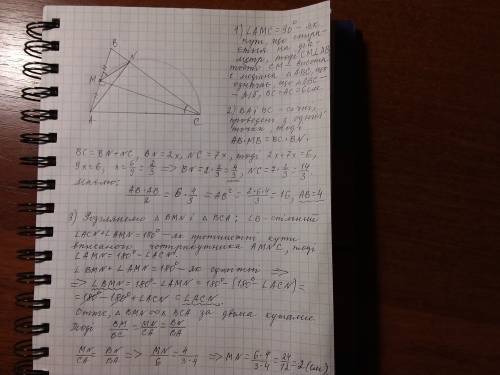 B
N
M
A
C
1) ∠AMC=90° - як
кути, що спира-
ється на діа-
метр, тоді CM⊥AB
тобто CM - висота
і медіана △ABC, що
означає, що △ABC
- р/б, BC=AC=6см
2) BA і BC - січні,
проведені з однієї
точки, тоді
AB·MB=BC·BN;
BC=BN+NC, BN=2x, NC=7x, тоді 2x+7x=6,
9x=6; x=6/9=2/3 ⇒ BN=2·2/3=4/3, NC=7·2/3=14/3
Маємо:
AB·AB/2 = 6·4/3 ⇒ AB²=2·6·4/3=16, AB=4
3) Розглянемо △BMN і △BCA; ∠B - спільний
∠ACN+∠AMN=180° - як протилежні кути
вписаного чотирикутника AMNC, тоді
∠AMN=180°-∠ACN.
∠BMN+∠AMN=180° - як суміжні ⇒
⇒ ∠BMN=180°-∠AMN=180°-(180°-∠ACN)=
=180°-180°+∠ACN=∠ACN.
Отже, △BMN∾△BCA за двома кутами
Тоді BM/BC=MN/CA=BN/BA
MN/CA=BN/BA ⇒ MN/6=4/3·4 ⇒ MN=6·4/3·4=24/12=2(см)